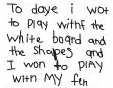 To daye i wot
to play withf the
white board and
the Shopes and
I won to PlAY
with MY feh